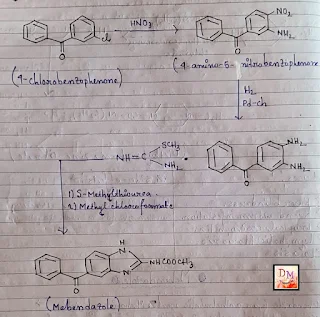 HNO3
NO2
Cl
NH2
O
O
(4-chlorobenzophenone)
(4-amino-5-nitrobenzophenone
H2
Pd-Ch
SCH3
NH=C
NH2
NH2
NH2
O
1) S-Methylthiourea
2) Methyl chloroformate
H
N
NHCOOCH3
N
O
DM
(Mebendazole)